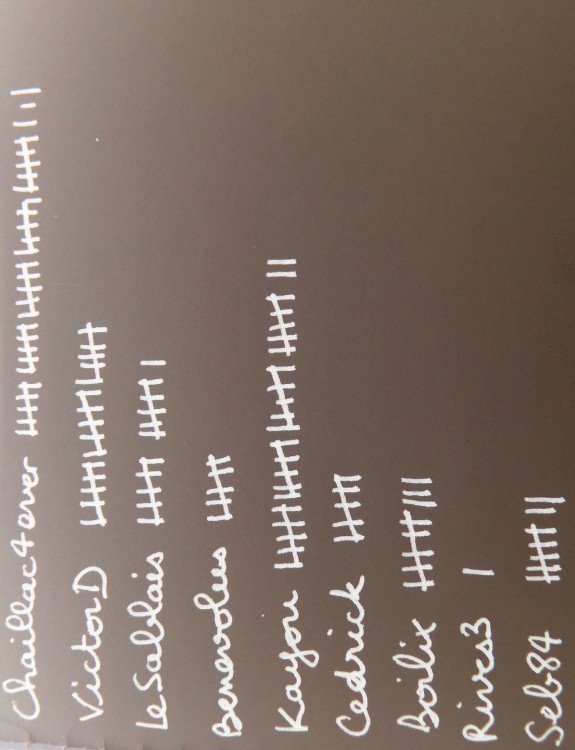 Chaillac4ever 卌 卌 卌 卌 卌 |||
VictorD 卌 卌 卌
LeSablais 卌 卌 |
Benevolus 卌
Kayou 卌 卌 卌 卌 ||
Cedrick 卌
Boilix 卌 |||
Rives3 |
Seb84 卌 ||